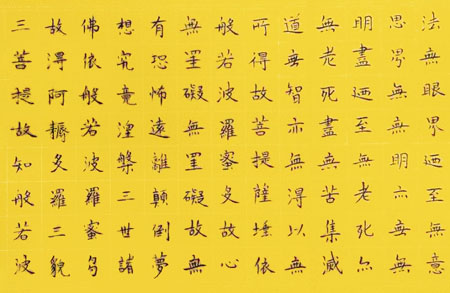 法無眼界迺至無意
思界無無明亦無無
明盡迺至無老死亦
無老死盡無苦集滅
道無智亦無得以無
所得故菩提薩埵依
般若波羅蜜多故心
無罣礙無罣礙故無
有恐怖遠離顛倒夢
想究竟涅槃三世諸
佛依般若波羅蜜多
故得阿耨多羅三藐
三菩提故知般若波